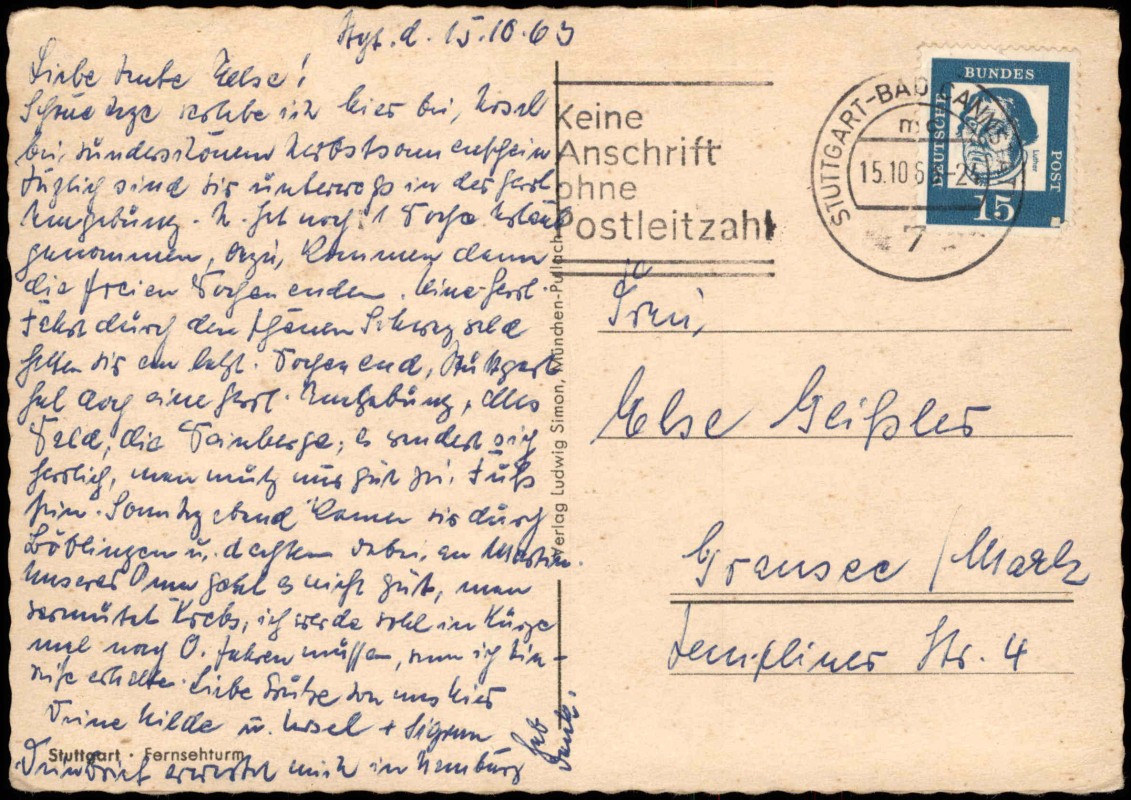 Stgt. d. 15.10.63
Liebe Tante Else!
Schöne Tage verlebe ich hier bei Ursel
bei wunderschönem Herbstsonnenschein
Täglich sind wir unterwegs in der herrl.
Umgebung. U. hat noch 1 Woche Urlaub
genommen, dazu kommen dann
die freien Wochenenden. Eine herrl.
Fahrt durch den schönen Schwarzwald
hatten wir am letzt. Wochenend, Stuttgart
hat doch eine herrl. Umgebung, alles
Wald, die Weinberge, es wandert sich
herrlich, man muß nur gut zu Fuß
sein. Sonntagabend kamen wir durch
Böblingen u. dachten dabei an Martin.
Unserer Oma geht es nicht gut, man
vermutet Krebs, ich werde wohl in Kürze
mal nach O. fahren müssen, wenn ich Ein-
reise erhalte. Liebe Grüße von uns hier
Deine Hilde u. Ursel + Sigrun
Hab Dank.
Dein Brief erwartet mich in Hamburg
Stuttgart · Fernsehturm
Verlag Ludwig Simon, München-Pullach
Keine
Anschrift
ohne
Postleitzahl
STUTTGART-BAD CANNST
15.10.6
7
DEUTSCHE
BUNDES
POST
15
Frau
Else Geißler
Gransee / Mark
Templiner Str. 4